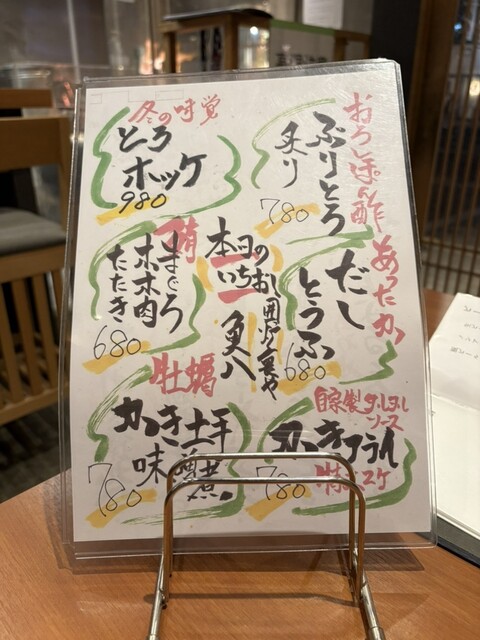 おろしぽん酢
ぶりとろ
炙り
780
冬の味覚
とろ
ホッケ
980
あったか
だし
とうふ
680
本日の
いちおし
囲炉裏や
魚八
まぐろ
ホホ肉
たたき
680
自家製タルタル
ソース
かきフライ
780
牡蠣
かき土手
味噌煮
780